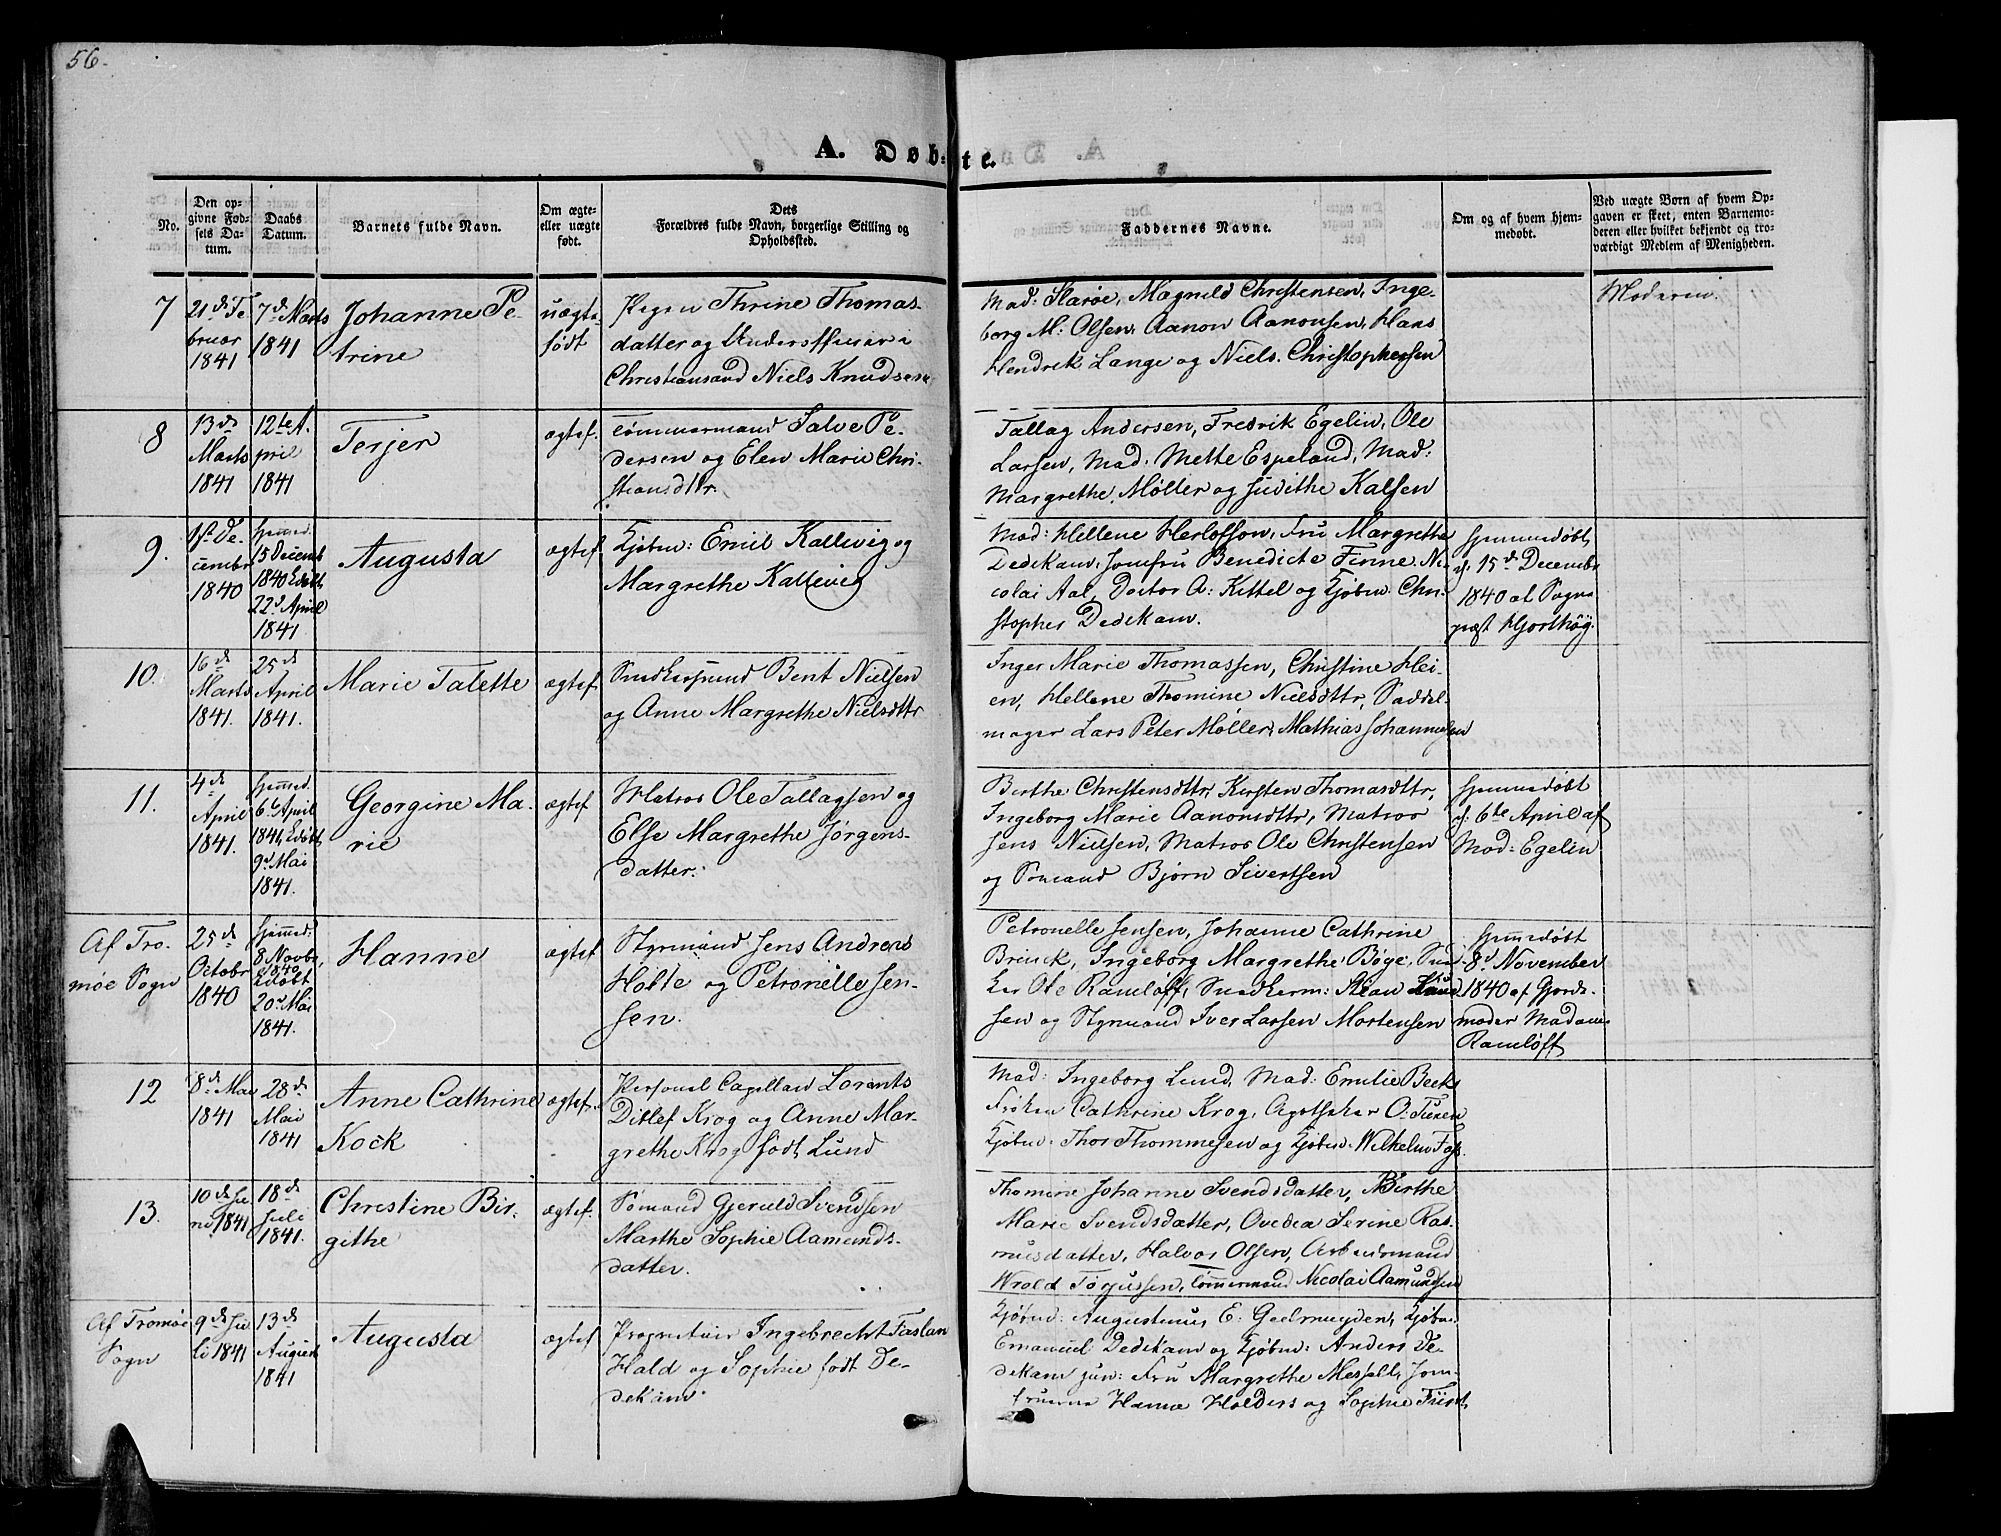 56.
A. Døbte.
No.
Den op-
givne Fød-
sels Da-
tum.
Daabs
Datum.
Barnets fulde Navn.
Om ægte-
eller uægte
født.
Dets
Forældres fulde Navn, borgerlige Stilling og
Opholdssted.
Faddernes Navne.
Om og af hvem hjem-
medøbt.
Ved uægte Børn af hvem Op-
gaven er skeet, enten Barnemo-
deren eller hvilket bekjendt og tro-
værdigt Medlem af Menigheden.
7
21de Fe
bruar
1841
7de Marts
1841
Johanne Pe-
trine
uægte
født
Pigen Thrine Thomas-
datter og Underofficier i
Christiansand Niels Knudsen
Mad: Skarøe, Magnild Christensen, Inge-
borg M: Olsen, Aanon Aanonsen, Hans
Hendrik Lange og Niels Christophersen
Moderen.
8
13de
Marts
1841
12te A-
pril
1841
Terjer
ægtef.
Tømmermand Salve Pe-
dersen og Elen Marie Chri-
stiansdttr.
Tallag Andersen, Fredrik Egelin, Ole
Larsen, Mad: Mette Espeland, Mad:
Margrethe Møller og Judithe Kalsen
9.
1ste De-
cembr
1840
Hjemmed.
15 Decemb
1840
22d April
1841.
Augusta
ægtef.
Kjøbm: Emil Kallevig og
Margrethe Kallevig
Mad: Hellene Herlofson, Fru Margrethe
Dedekam, Jomfru Benedicte Finne, Ni-
colai Aal, Doctor A: Kittel og Kjøbm: Chri-
stopher Dedekam.
Hjemmedøbt
d. 15de Decembr
1840 af Sogne
præst Hjorthøy.
10.
16de
Marts
1841.
25de
April
1841.
Marie Talette
ægtef.
Snedkersvend Bent Nielsen
og Anne Margrethe Nielsdttr
Inger Marie Thomassen, Christine Hei-
en, Hellene Thomine Nielsdttr, Saddel-
mager Lars Peter Møller, Mathias Johannesen
11.
4de
April
1841.
Hjemmed.
6te April
1841,
9d Mai
1841.
Georgine Ma-
rie
ægtef.
Matros Ole Tallagsen og
Else Margrethe Jørgens-
datter.
Berthe Christensdttr, Kirsten Thomasdttr,
Ingeborg Marie Aanonsdttr, Matros
Jens Nielsen, Matros Ole Christensen
og Sømand Bjørn Sivertsen
Hjemmedøbt
d. 6te April af
Mad: Egelin
Af Tro-
møe Sogn
25de
Octobr
1840
Hjemmed:
8 Novbr,
1840
20d Mai
1841.
Hanne
ægtef.
Styrmand Jens Andreas
Holte og Petronelle Jen-
sen.
Petronelle Jensen, Johanne Cathrine
Brinck, Ingeborg Margrethe Bøge, Sned-
ker Ole Ramløff, Snedkerm: Stean Knud-
sen og Styrmand Iver Larsen Mortensen
Hjemmedøbt
8d November
1840 af Gjorde-
moder Madame
Ramløff
12
8de Mai
1841
28de
Mai
1841
Anne Cathrine
Kock
ægtef.
Personel Capellan Lorents
Ditlef Krog og Anne Mar-
grethe Krog født Lund
Mad: Ingeborg Lund, Mad: Emilie Beck,
Frøken Cathrine Krog, Apotheker O. Tuxen
Kjøbm: Thor Thommesen og Kjøbm: Wilhelm Foss.
13.
10de Ju
ni 1841
18de
Juli
1841.
Christine Bir-
githe
ægtef.
Sømand Gjeruld Svendsen
Marthe Sophie Aamunds-
datter.
Thomine Johanne Svendsdatter, Birthe
Marie Svendsdatter, Ovedea Serine Ras-
musdatter, Halvor Olsen, Arbeidsmand
Wrold Torjussen, Tømmermand Nicolai Aamundsen
Af Tromøe
Sogn
9de Ju
li 1841
13de
August
1841
Augusta
ægtef.
Proprietair Ingebrecht Faslan
Hald og Sophie født De-
dekam.
Kjøbmd: Augustinus E. Geelmuyden, Kjøbm.
Emanuel Dedekam og Kjøbm: Anders De-
dekam jun: Fru Margrethe Messell, Jom-
fruerne Hanna Holders og Sophie Fürst,